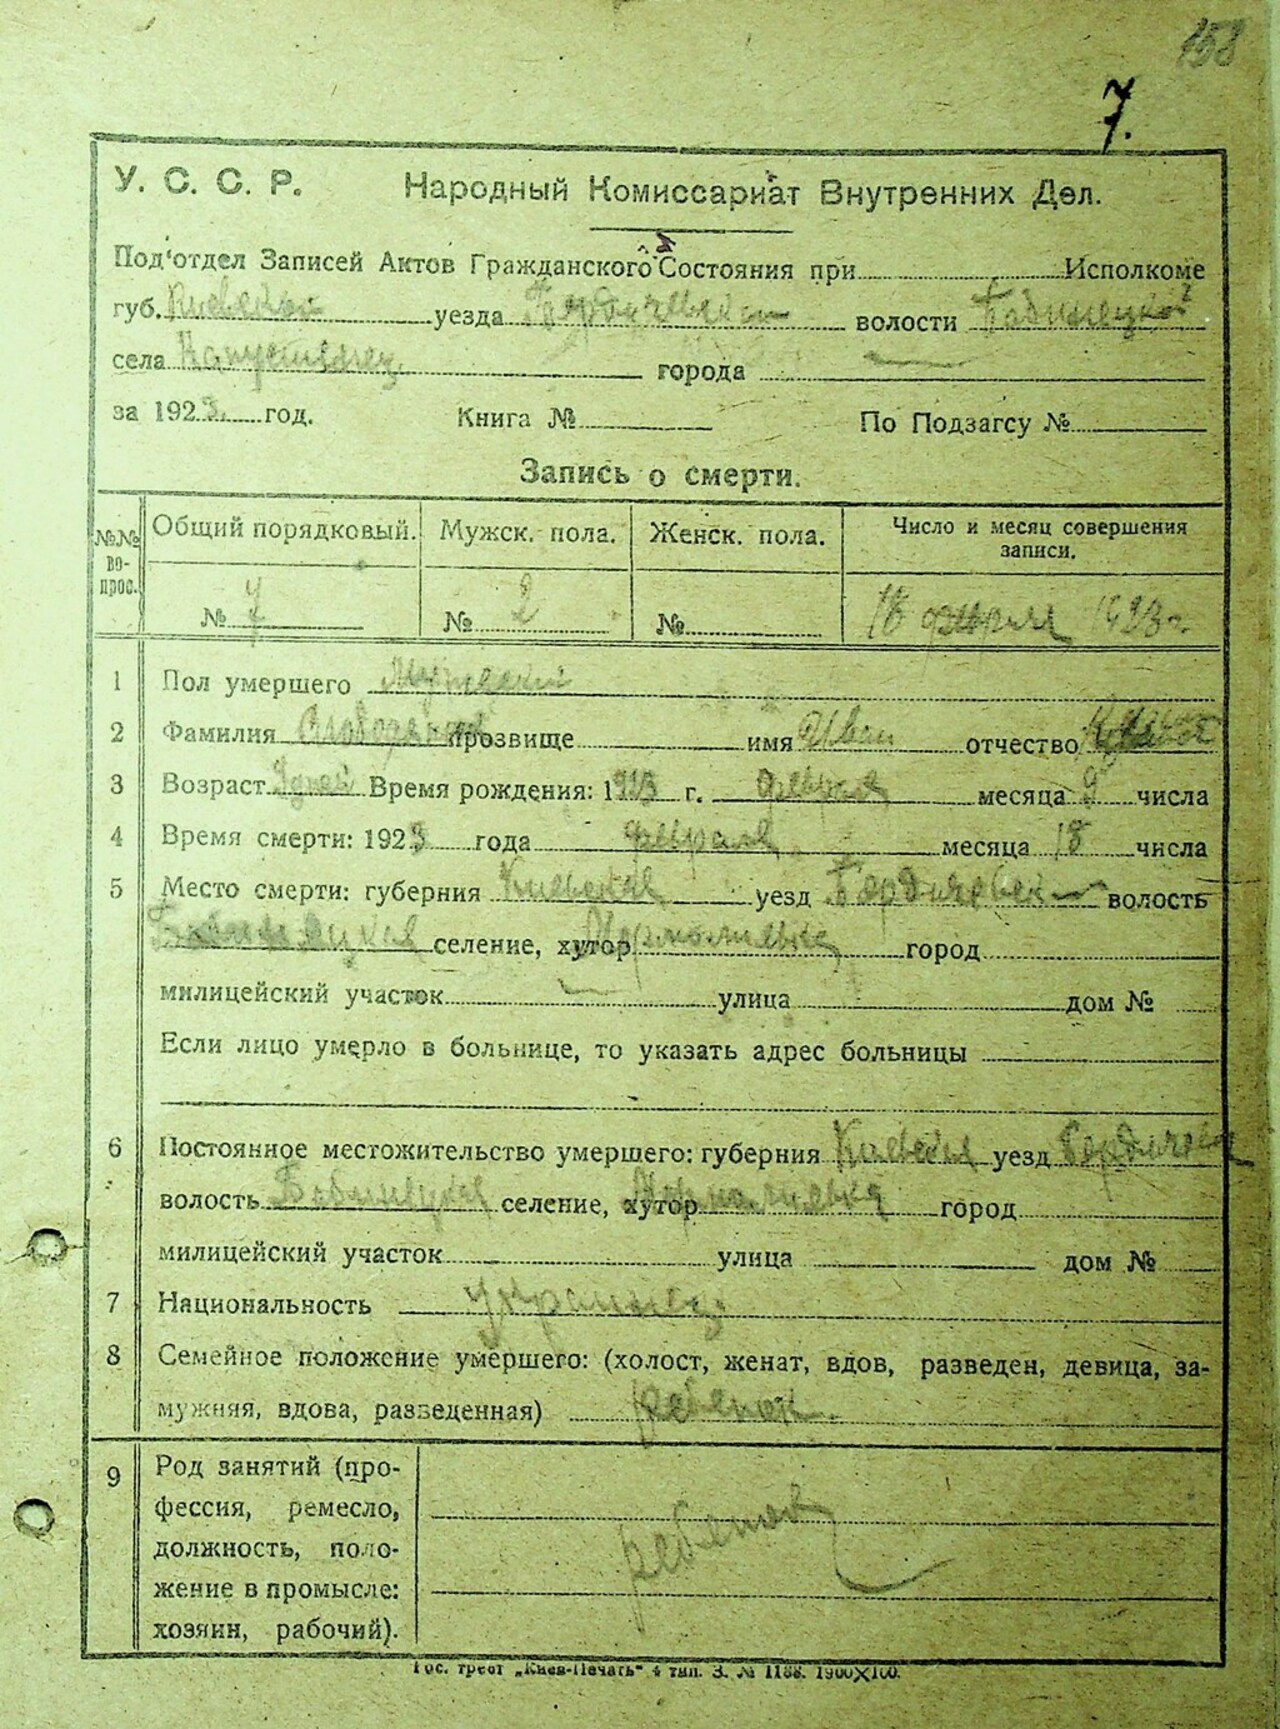 158
7.
У. С. С. Р. Народный Комиссариат Внутренних Дел.
Под'отдел Записей Актов Гражданского Состояния при Исполкоме
губ. Киевской уезда Бердичевск волости
села города
за 1923 год. Книга № По Подзагсу №
Запись о смерти.
№№ во-прос. Общий порядковый. Мужск. пола. Женск. пола. Число и месяц совершения записи.
№ 7 № 2 № 18 февраля 1923 г.
1 Пол умершего Мужской
2 Фамилия прозвище имя Иван отчество
3 Возраст 9 дней Время рождения: 1923 г. февраля месяца 9 числа
4 Время смерти: 1923 года февраля месяца 18 числа
5 Место смерти: губерния Киевская уезд Бердичевск волость
селение, хутор город
милицейский участок улица дом №
Если лицо умерло в больнице, то указать адрес больницы
6 Постоянное местожительство умершего: губерния Киевская уезд
волость селение, хутор город
милицейский участок улица дом №
7 Национальность украинец
8 Семейное положение умершего: (холост, женат, вдов, разведен, девица, за-
мужняя, вдова, разведенная) ребенок
9 Род занятий (про-
фессия, ремесло,
должность, поло-
жение в промысле:
хозяин, рабочий).
ребенок
Гос. трест „Киев-Печать" 4 тип. З. № 1188. 1900X100.